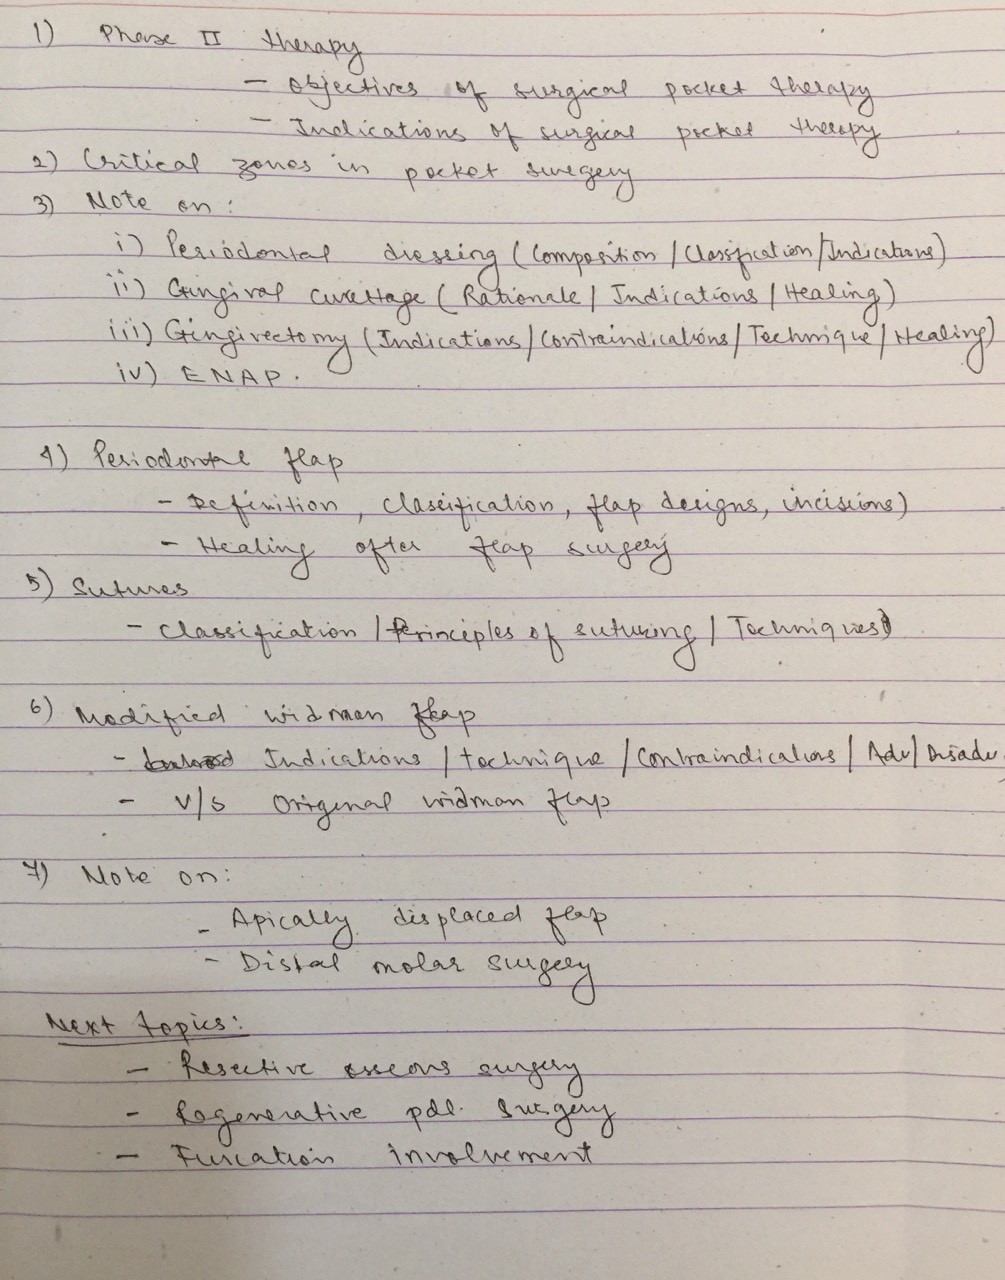 1) Phase II therapy
- Objectives of surgical pocket therapy
- Indications of surgical pocket therapy
2) Critical zones in pocket surgery
3) Note on:
i) Periodontal dressing (Composition / Classification / Indications)
ii) Gingival curettage (Rationale / Indications / Healing)
iii) Gingivectomy (Indications / Contraindications / Technique / Healing)
iv) ENAP.
4) Periodontal flap
- Definition, classification, flap designs, incisions)
- Healing after flap surgery
5) Sutures
- Classification / Principles of suturing / Techniques)
6) Modified widman flap
- Indications / technique / Contraindications / Adv / Disadv
- v/s Original widman flap
7) Note on:
- Apically displaced flap
- Distal molar surgery
Next topics:
- Resective osseous surgery
- Regenerative pdl. surgery
- Furcation involvement